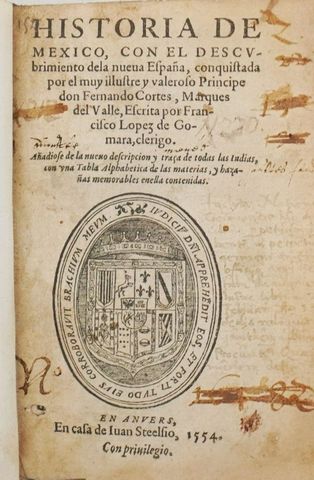 HISTORIA DE
MEXICO, CON EL DESCV-
brimiento dela nueua España, conquistada
por el muy illustre y valeroso Principe
don Fernando Cortes, Marques
del Valle, Escrita por Fran-
cisco Lopez de Go-
mara, clerigo.
Añadiose de la nueuo descripcion y traça de todas las Indias,
con vna Tabla Alphabetica de las materias, y haza-
ñas memorables enella contenidas.
IVDICIV DNI APPREHEDIT EOS ET FORTITVDO EIVS CORROBORAVIT BRACHIVM MEVM
EN ANVERS,
En casa de Iuan Steelsio, 1554.
Con priuilegio.